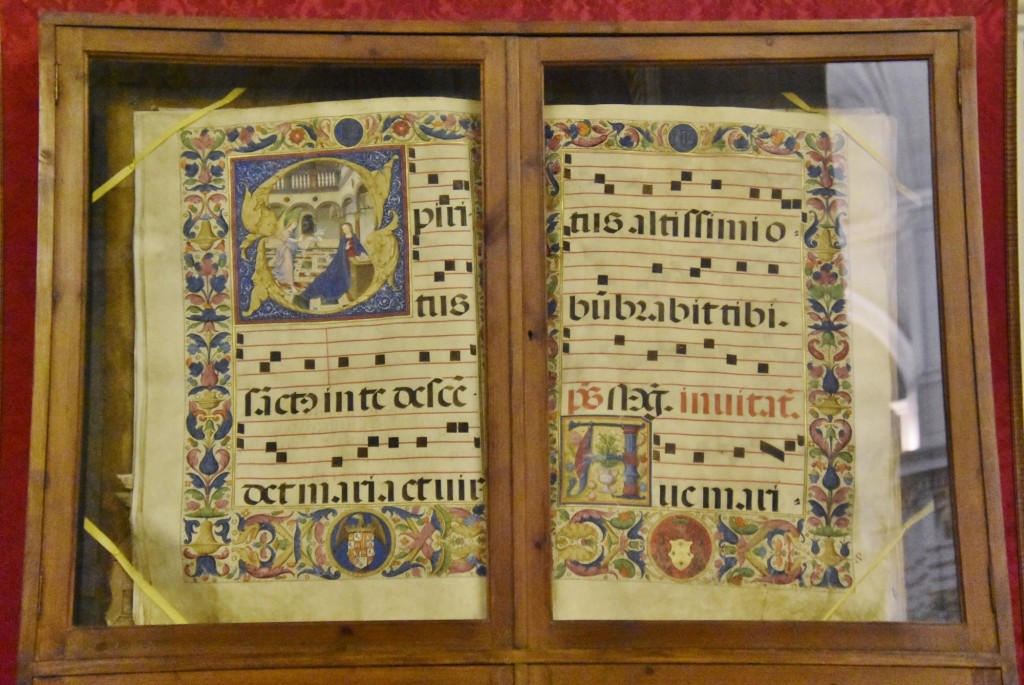 Spiri-
tus
sãctꝰ in te desce͂-
det maria et uir
tus altissimi o-
bũbrabit tibi.
p̃s inuitat̃.
Aue mari-